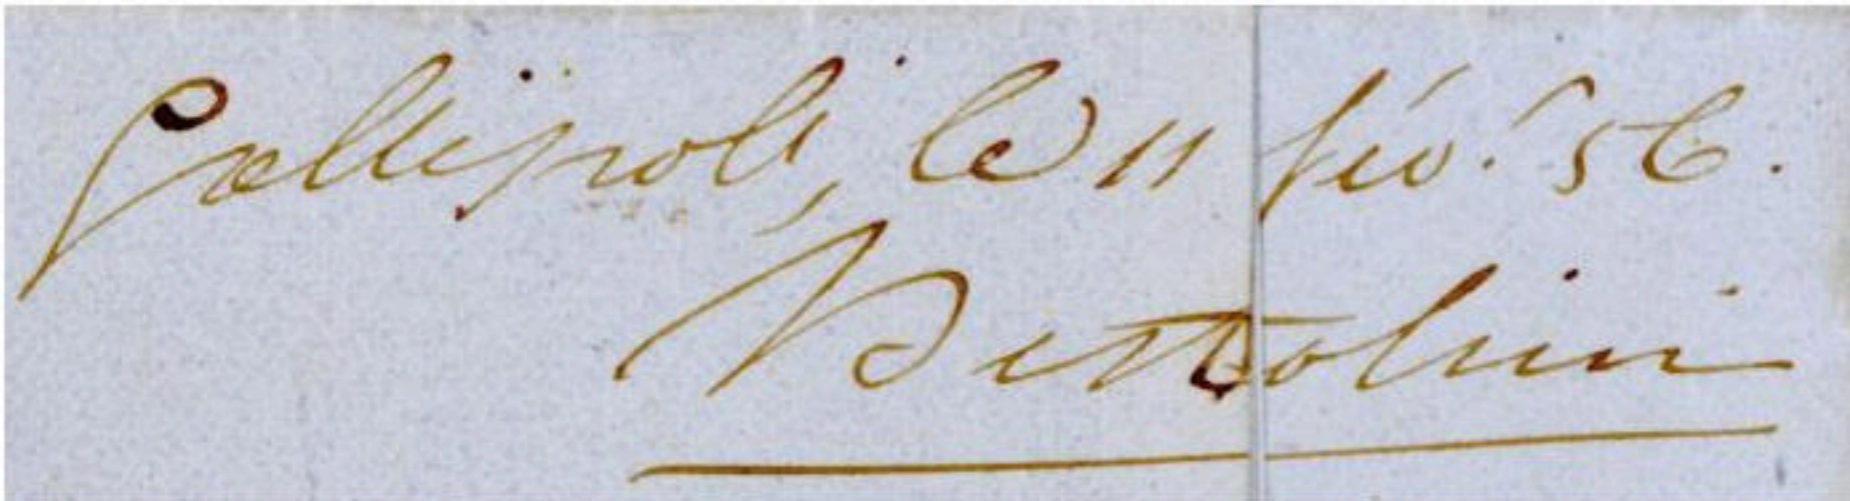 Gallipoli, le 11 fév. 56.
Bertolini